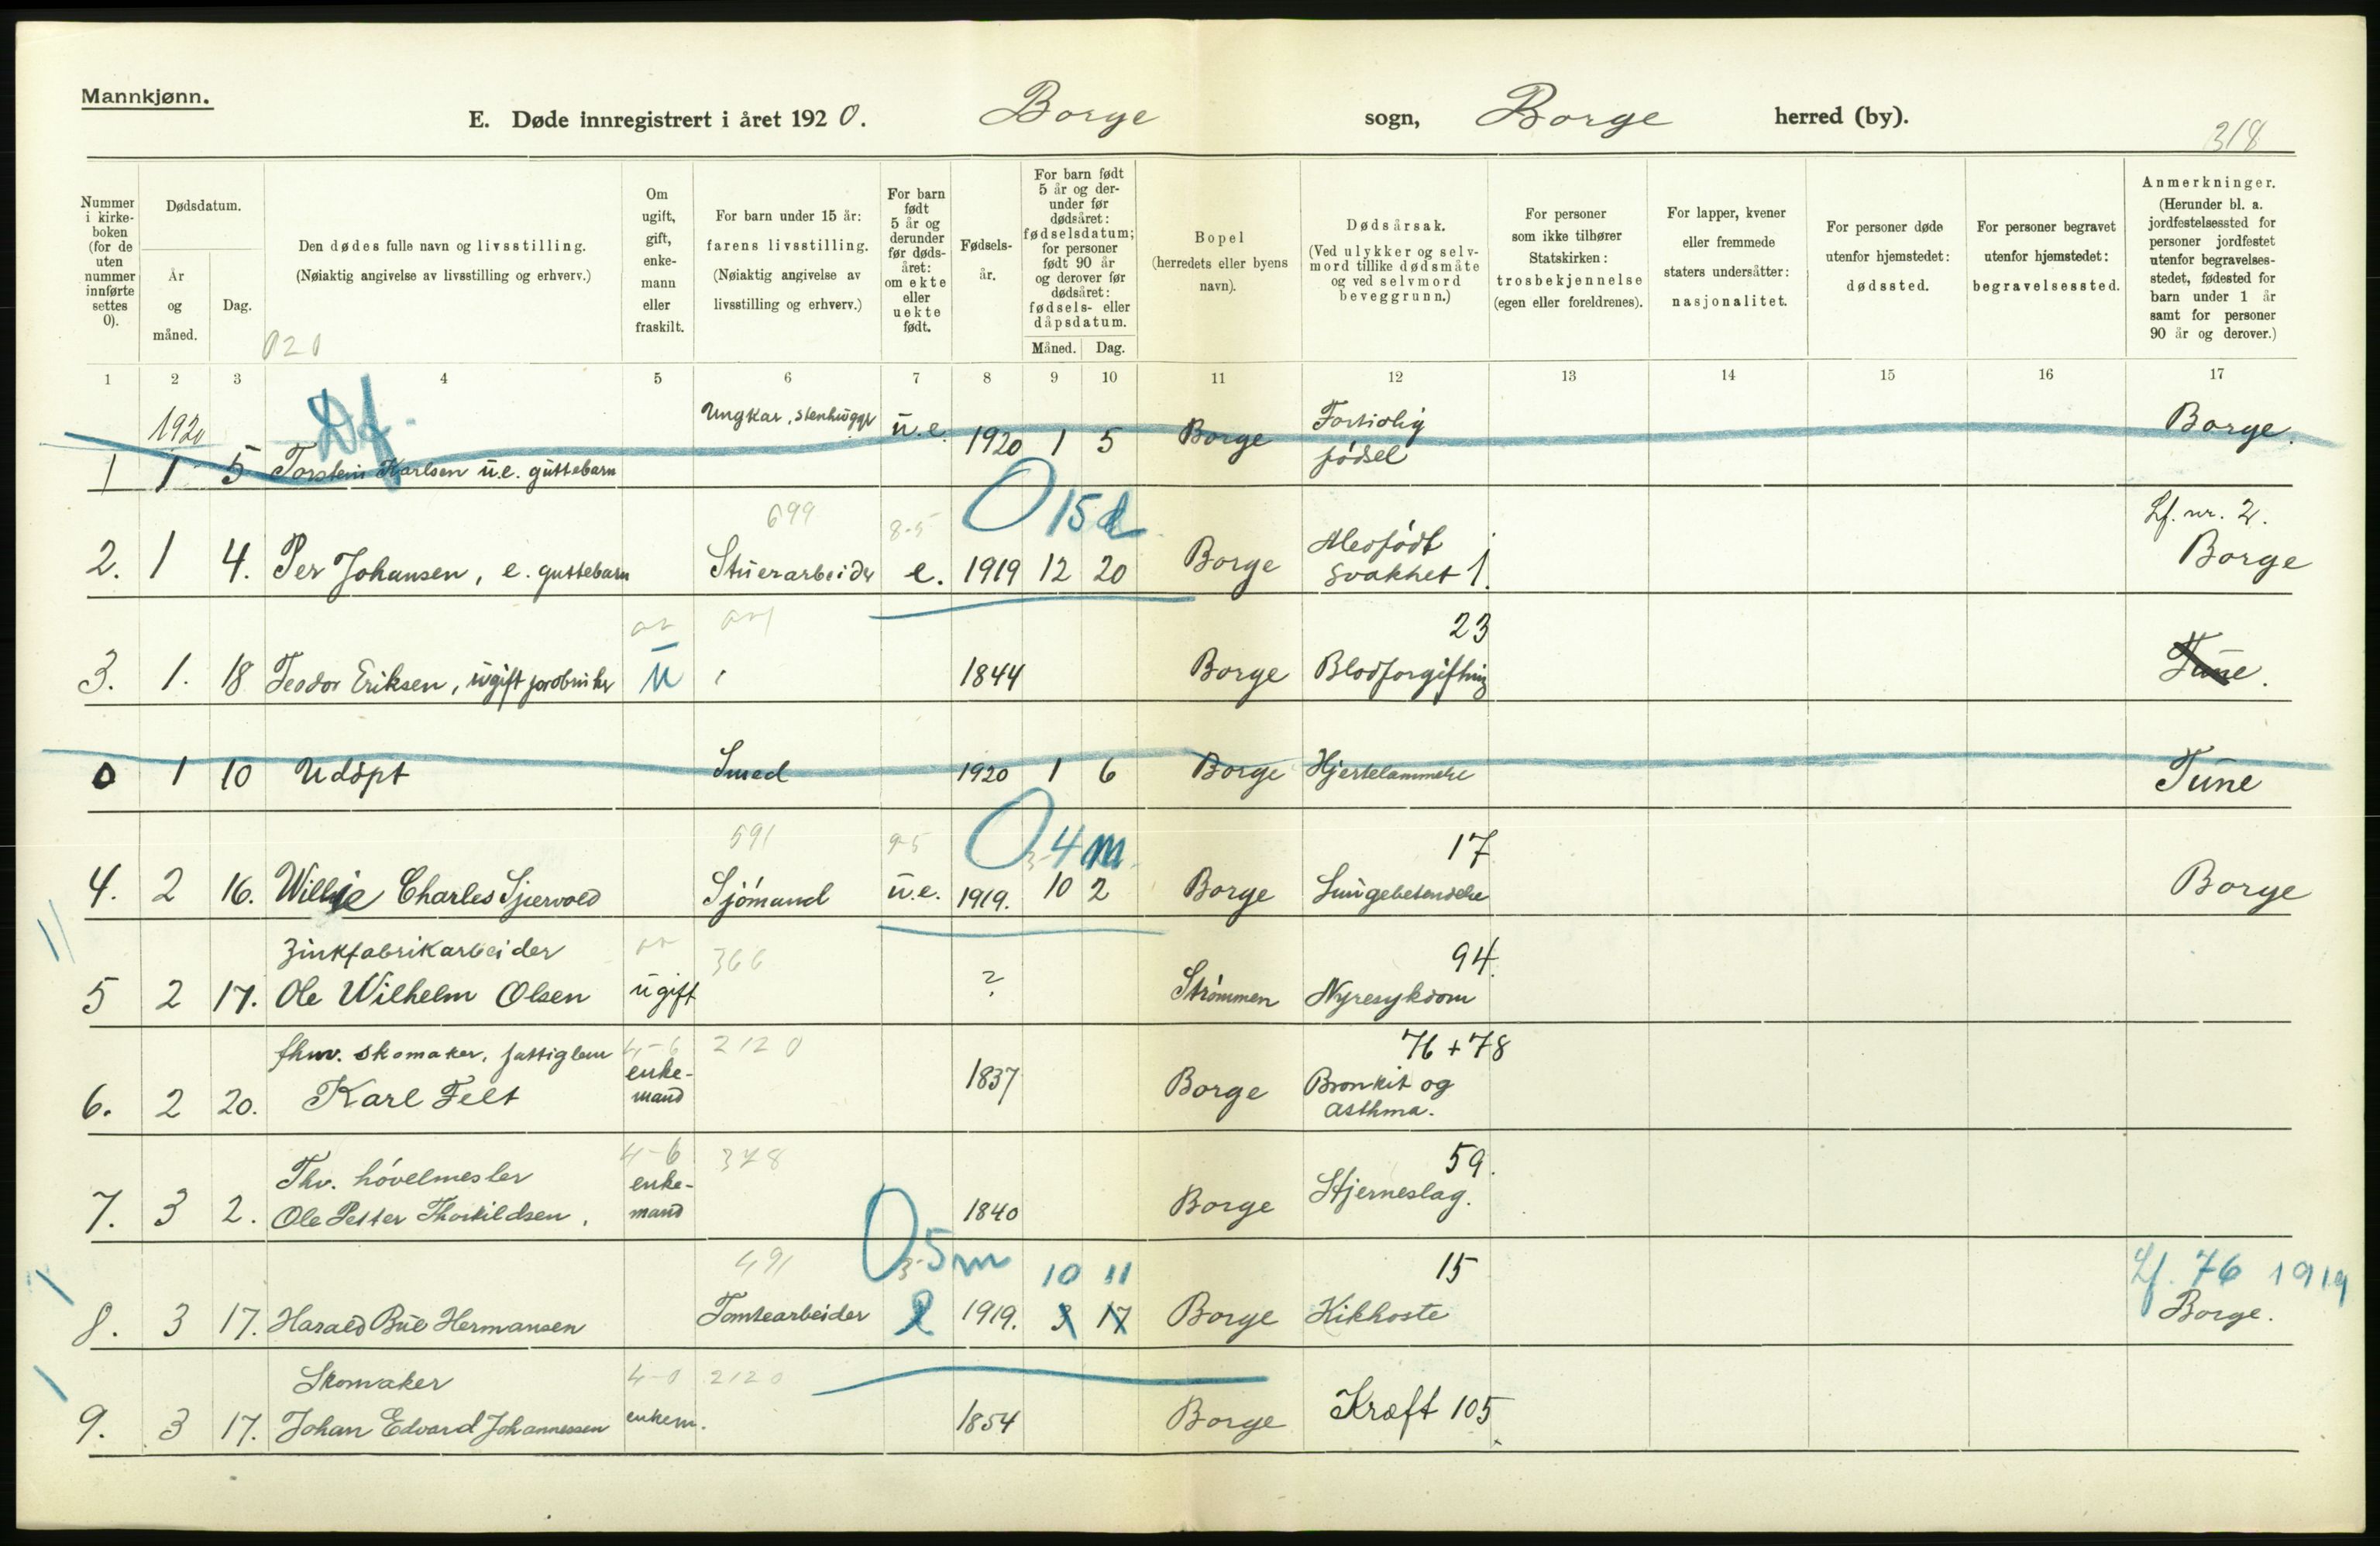 Mannkjønn.
E. Døde innregistrert i året 1920. Borge sogn, Borge herred (by).
318
Nummer i kirke-boken (for de uten nummer innførte settes 0).
Dødsdatum.
År og måned.
Dag.
Den dødes fulle navn og livsstilling.
(Nøiaktig angivelse av livsstilling og erhverv.)
020
Om ugift, gift, enke-mann eller fraskilt.
For barn under 15 år: farens livsstilling. (Nøiaktig angivelse av livsstilling og erhverv.)
For barn født 5 år og derunder før døds-året: om ekte eller uekte født.
Fødsels-år.
For barn født 5 år og der-under før dødsåret: fødselsdatum; for personer født 90 år og derover før dødsåret: fødsels- eller dåpsdatum.
Måned. Dag.
Bopel (herredets eller byens navn).
Dødsårsak. (Ved ulykker og selv-mord tillike dødsmåte og ved selvmord beveggrunn.)
For personer som ikke tilhører Statskirken: trosbekjennelse (egen eller foreldrenes).
For lapper, kvener eller fremmede staters undersåtter: nasjonalitet.
For personer døde utenfor hjemstedet: dødssted.
For personer begravet utenfor hjemstedet: begravelsessted.
Anmerkninger. (Herunder bl. a. jordfestelsessted for personer jordfestet utenfor begravelses-stedet, fødested for barn under 1 år samt for personer 90 år og derover.)
1 2 3 4 5 6 7 8 9 10 11 12 13 14 15 16 17
1920 Df. Ungkar, stenhugger u.e. Fortidlig
1 1 5 Torstein Karlsen u.e. guttebarn 1920 1 5 Borge fødsel Borge.
699 8-5 0 15 d Lf. nr. 2.
2. 1 4. Per Johansen, e. guttebarn Stuerarbeider e. 1919 12 20 Borge Medfødt svakhet 1. Borge
23
3. 1. 18 Teodor Eriksen, ugift u 1844 Borge Blodforgiftning Tune.
0 1 10 Udøpt Smed 1920 1 6 Borge Hjertelammelse Tune
591 9-5 0 4 m 17
4. 2 16. Willie Charles Sjørvold Sjömand u.e. 1919. 10 2 Borge Lungebetendelse Borge
Zinkfabrikarbeider 366 94.
5 2 17. Ole Wilhelm Olsen ugift ? Strömmen Nyresykdom
fhv. skomaker, fattiglem 4-6 2120 76 + 78
6. 2 20. Karl Felt enke-mand 1837 Borge Bronkit og asthma.
Fhv. hövelmester 4-6 378 59.
7. 3 2. Ole Petter Thorkildsen, enke-mand 1840 Borge Hjerneslag.
491 0 5 m 10 11 15 Lf. 76 1919
8. 3 17. Harald Hermansen Tomtearbeider e 1919. 3 17 Borge Kikhoste Borge.
Skomaker 4-0 2120
9. 3 17. Johan Edvard Johannessen enkem. 1854 Borge Kræft 105